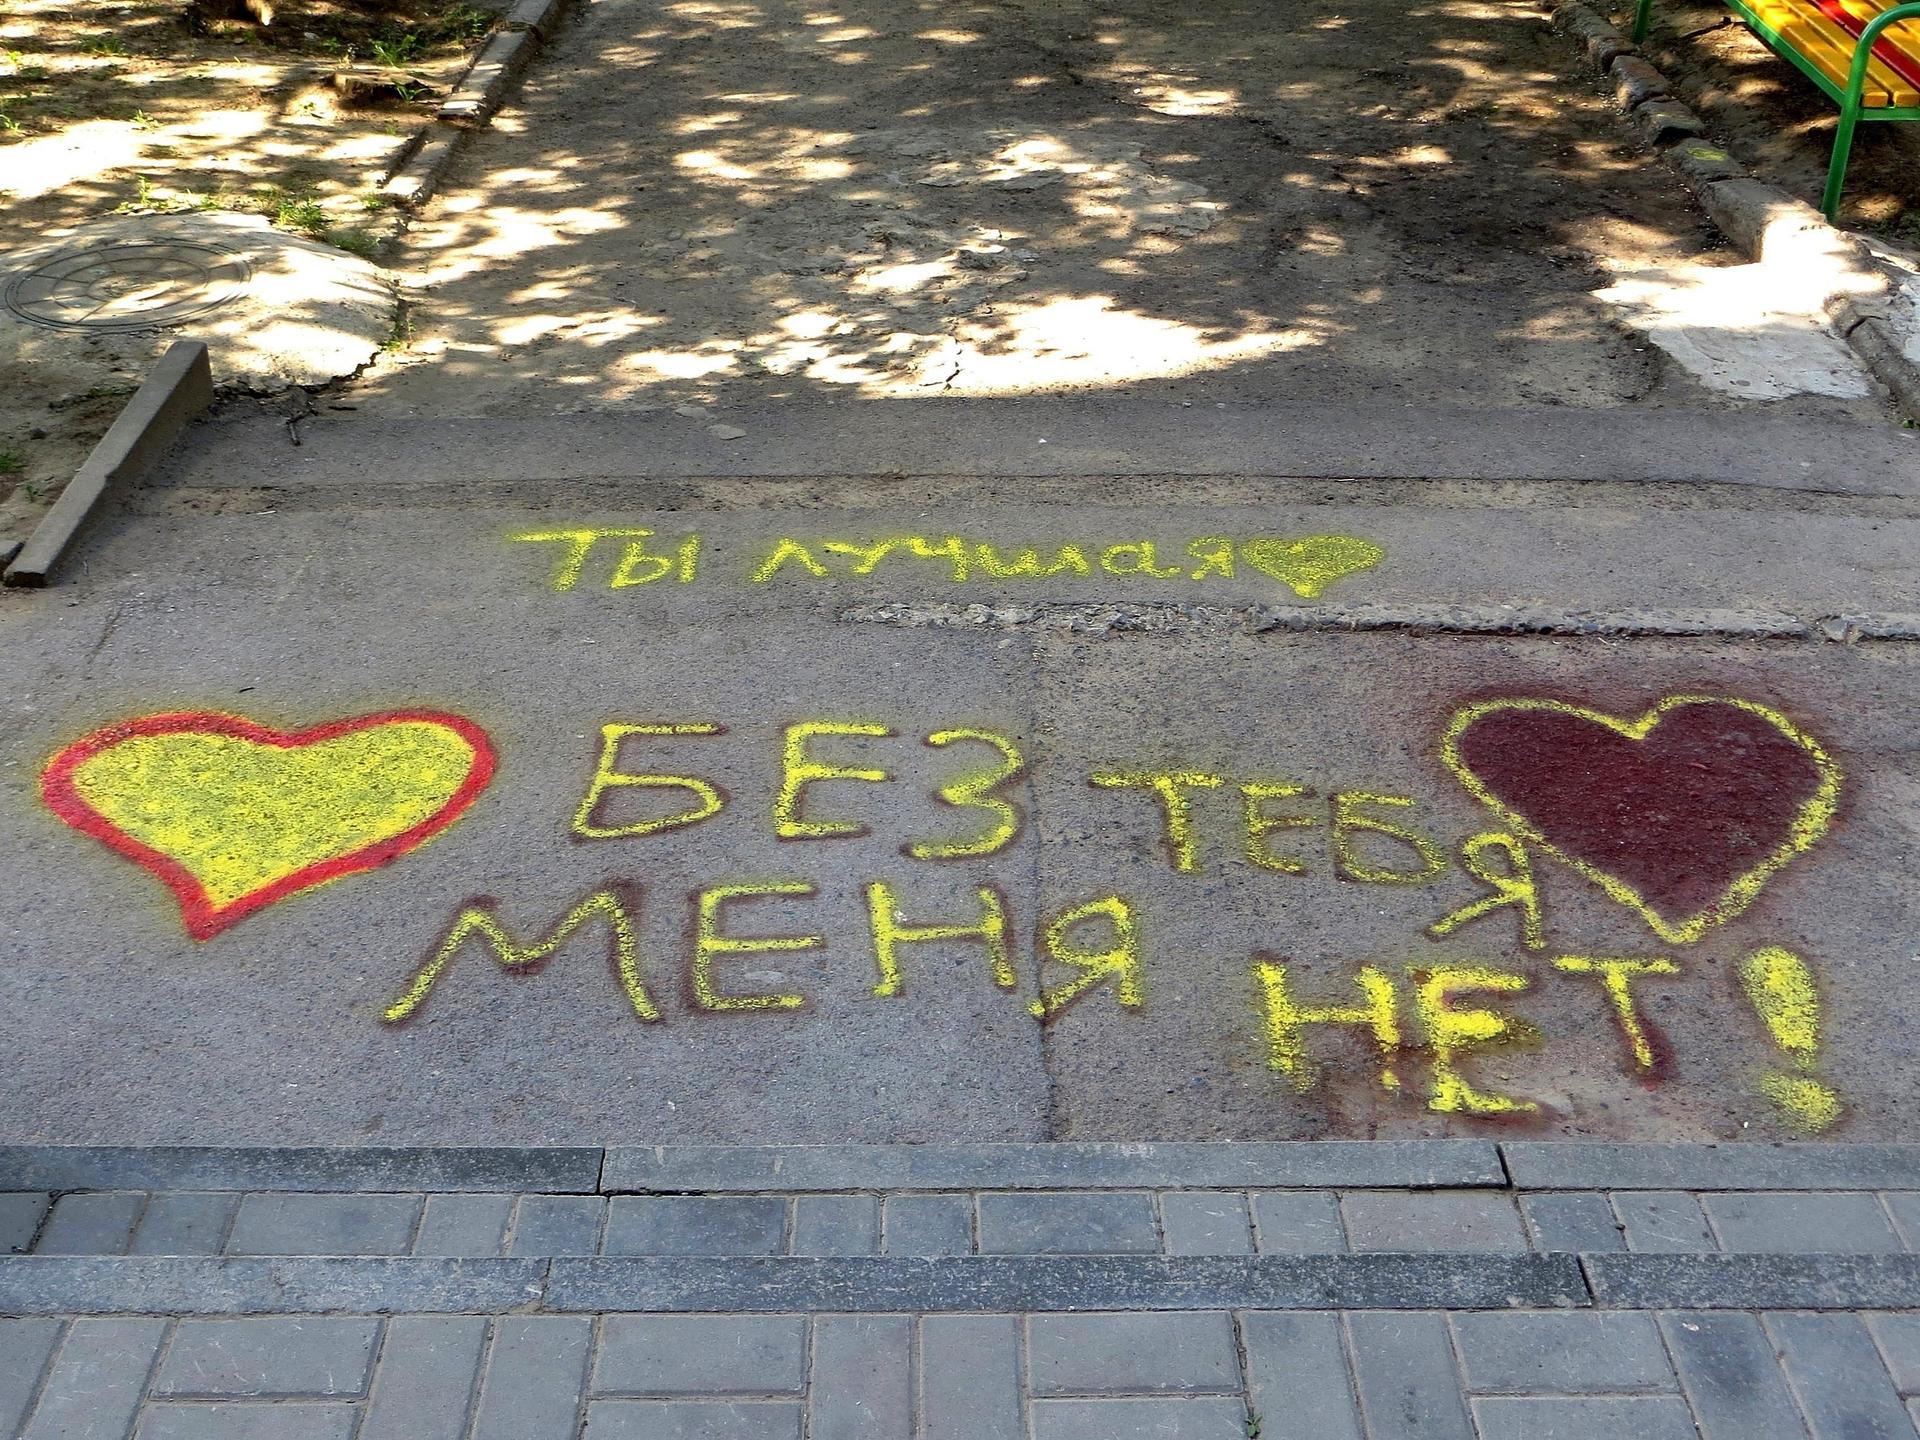 Ты лучшая
БЕЗ ТЕБЯ
МЕНЯ НЕТ!